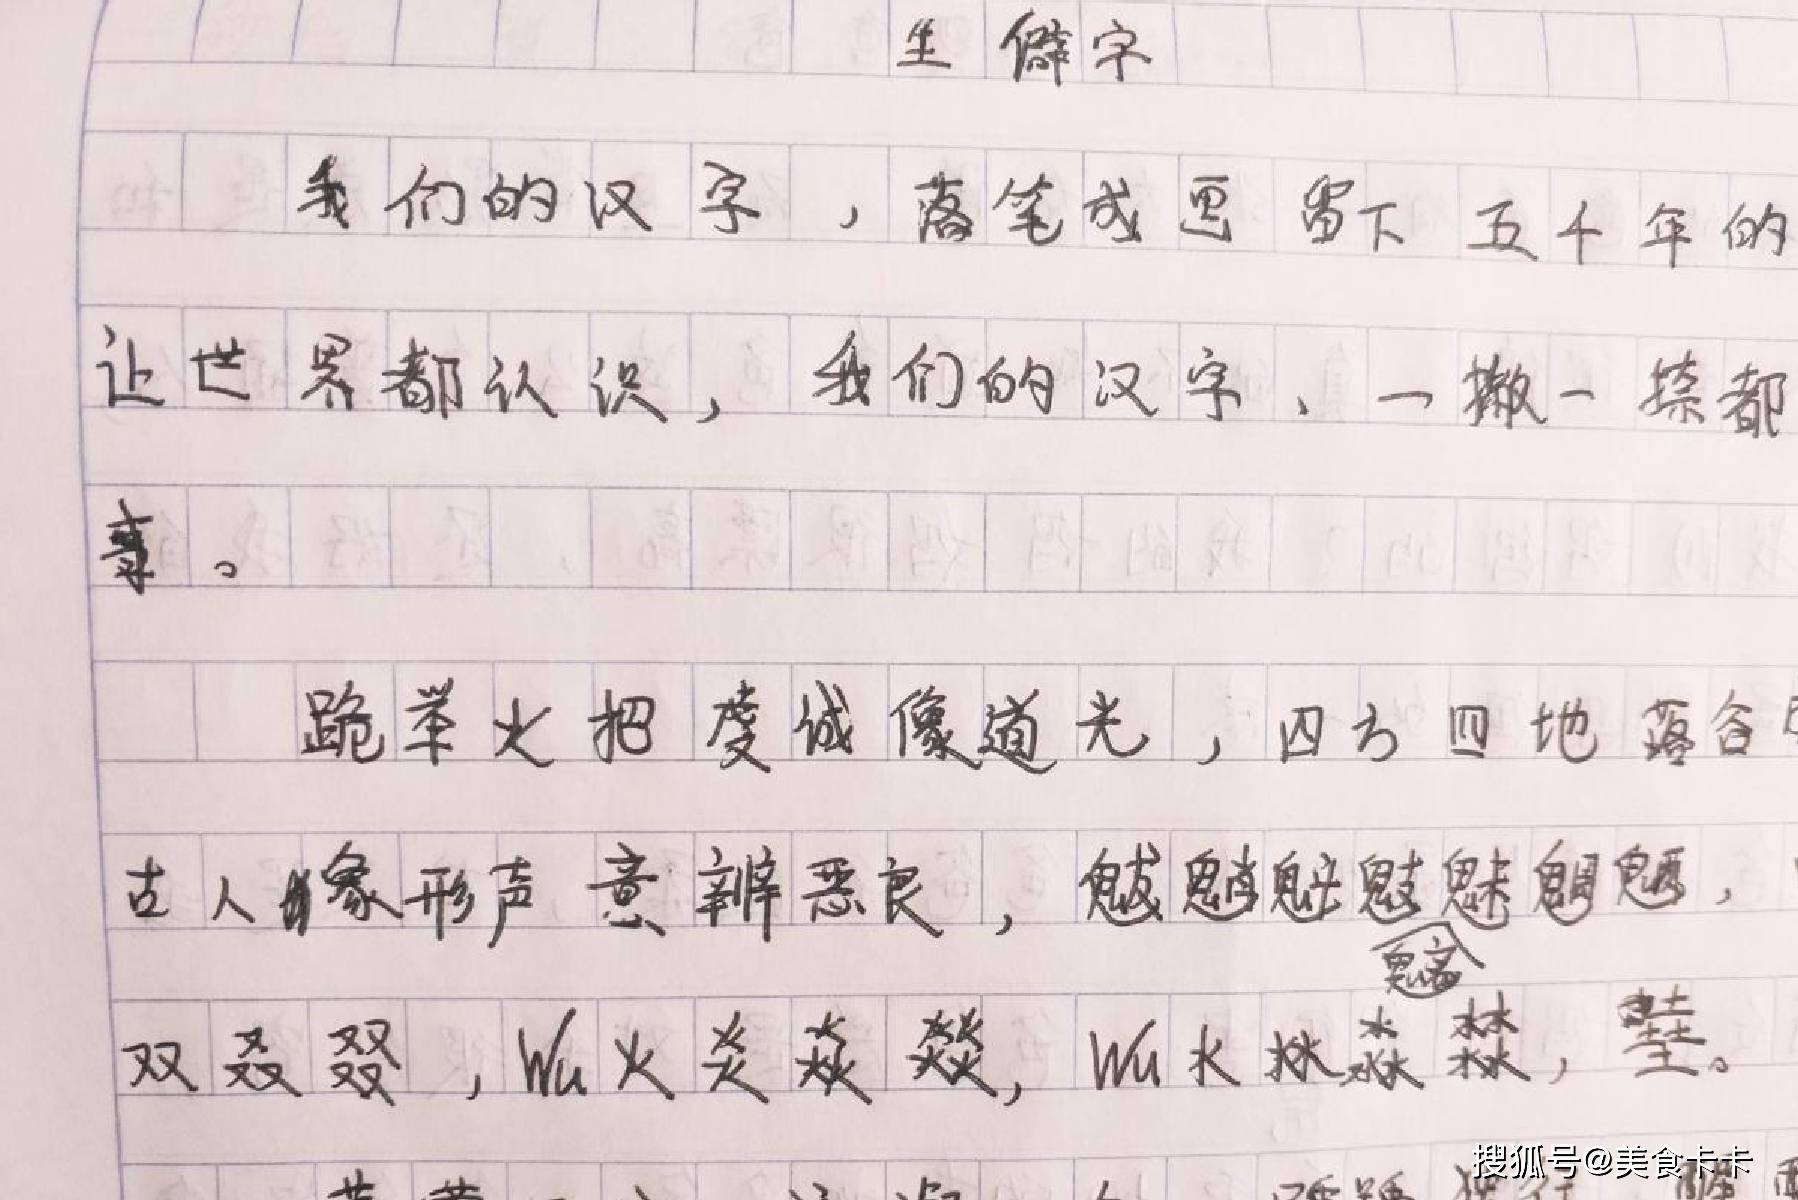 生僻字
我们的汉字，落笔成画留下五千年的
让世界都认识，我们的汉字、一撇一捺都
事。
跪举火把虔诚像道光，四方四地落谷
古人象形声意辨恶良，魃魈魁鬾魅魍魉，
双叒叕，Wu火炎焱燚，Wu水沝淼㵘，㙓。
搜狐号@美食卡卡